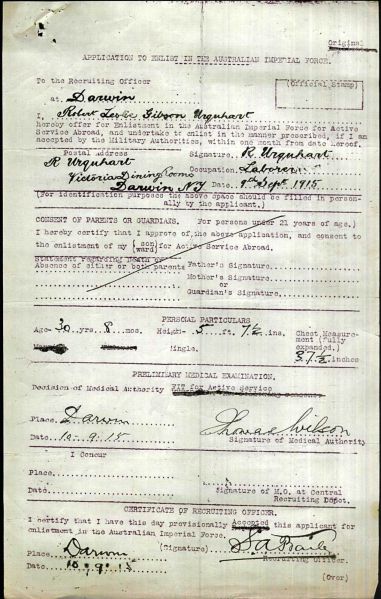 Original
APPLICATION TO ENLIST IN THE AUSTRALIAN IMPERIAL FORCE.
To the Recruiting Officer
(Official Stamp)
at Darwin
I, Robert Leslie Gibson Urquhart
hereby offer for Enlistment in the Australian Imperial Force for Active
Service Abroad, and undertake to enlist in the manner prescribed, if I am
accepted by the Military Authorities, within one month from date hereof.
Postal Address Signature. R Urquhart
R Urquhart Occupation. Laborer
Victoria Dining Rooms
Darwin N.T Date. 9th Sept 1915
(For identification purposes the above space should be filled in person-
ally by the applicant.)
CONSENT OF PARENTS OR GUARDIANS. For persons under 21 years of age.)
I hereby certify that I approve of the above application, and consent to
the enlistment of my (son ward) for Active Service Abroad.
Statement regarding Death or
Absence of either or both parents Father's Signature.
Mother's Signature.
or
Guardian's Signature.
PERSONAL PARTICULARS
Age- 30 yrs 8 mos. Height- 5 ft. 7½ ins. Chest Measure-
ment (fully
expanded.)
Single. 37½ inches
PRELIMINARY MEDICAL EXAMINATION.
Decision of Medical Authority FIT for Active Service
Place. Darwin
Thomas Wilson
Date. 10.9.15 Signature of Medical Authority
I Concur
Place.
Date. Signature of M.O. at Central
Recruiting Depot.
CERTIFICATE OF RECRUITING OFFICER.
I certify that I have this day provisionally Accepted this applicant for
enlistment in the Australian Imperial Force.
Place. Darwin (Signature)
Date. 10.9.15 Recruiting Officer.
(Over)